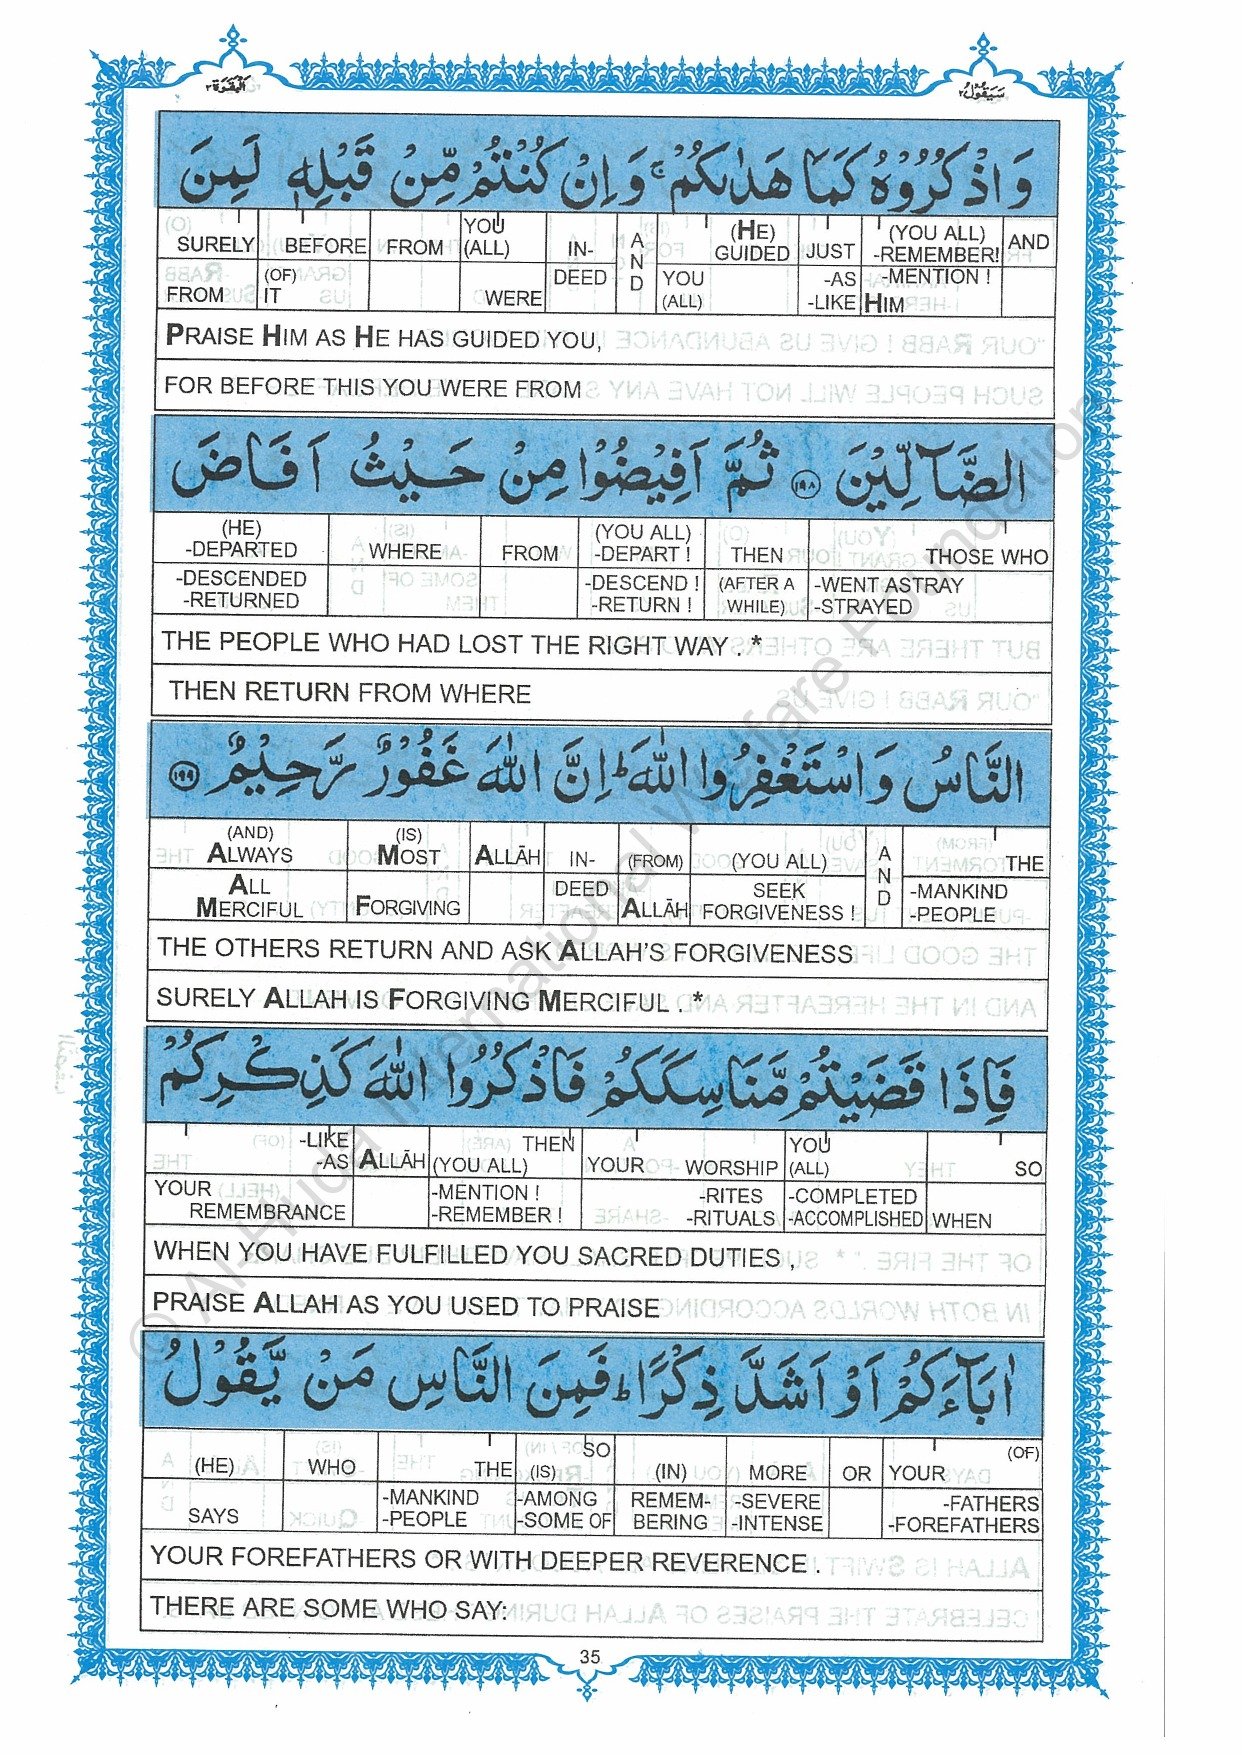 سَيَقُوْلُ ٢
اَلْبَقَرَة ٢
وَاذْكُرُوْهُ كَمَا هَدٰىكُمْ ۚ وَاِنْ كُنْتُمْ مِّنْ قَبْلِهٖ لَمِنَ
SURELY BEFORE FROM YOU (ALL) IN- AND (HE) GUIDED JUST (YOU ALL) -REMEMBER! AND
FROM (OF) IT WERE DEED YOU (ALL) -AS -LIKE -MENTION ! HIM
PRAISE HIM AS HE HAS GUIDED YOU,
FOR BEFORE THIS YOU WERE FROM
الضَّآلِّيْنَ ١٩٨ ثُمَّ اَفِيْضُوْا مِنْ حَيْثُ اَفَاضَ
(HE) -DEPARTED WHERE FROM (YOU ALL) -DEPART ! THEN THOSE WHO
-DESCENDED -RETURNED -DESCEND ! -RETURN ! (AFTER A WHILE) -WENT ASTRAY -STRAYED
THE PEOPLE WHO HAD LOST THE RIGHT WAY . *
THEN RETURN FROM WHERE
النَّاسُ وَاسْتَغْفِرُوا اللّٰهَ ؕ اِنَّ اللّٰهَ غَفُوْرٌ رَّحِيْمٌ ١٩٩
(AND) ALWAYS (IS) MOST ALLĀH IN- (FROM) (YOU ALL) AND THE
ALL MERCIFUL FORGIVING DEED ALLĀH SEEK FORGIVENESS ! -MANKIND -PEOPLE
THE OTHERS RETURN AND ASK ALLAH'S FORGIVENESS
SURELY ALLAH IS FORGIVING MERCIFUL . *
فَاِذَا قَضَيْتُمْ مَّنَاسِكَكُمْ فَاذْكُرُوا اللّٰهَ كَذِكْرِكُمْ
-LIKE -AS ALLĀH THEN (YOU ALL) YOUR WORSHIP YOU (ALL) SO
YOUR REMEMBRANCE -MENTION ! -REMEMBER ! -RITES -RITUALS -COMPLETED -ACCOMPLISHED WHEN
WHEN YOU HAVE FULFILLED YOU SACRED DUTIES ,
PRAISE ALLAH AS YOU USED TO PRAISE
اٰبَآءَكُمْ اَوْ اَشَدَّ ذِكْرًا ؕ فَمِنَ النَّاسِ مَنْ يَّقُوْلُ
(HE) WHO THE SO (IS) (IN) MORE OR YOUR (OF)
SAYS -MANKIND -PEOPLE -AMONG -SOME OF REMEM- BERING -SEVERE -INTENSE -FATHERS -FOREFATHERS
YOUR FOREFATHERS OR WITH DEEPER REVERENCE .
THERE ARE SOME WHO SAY:
35
© Al-Huda International Welfare Foundation